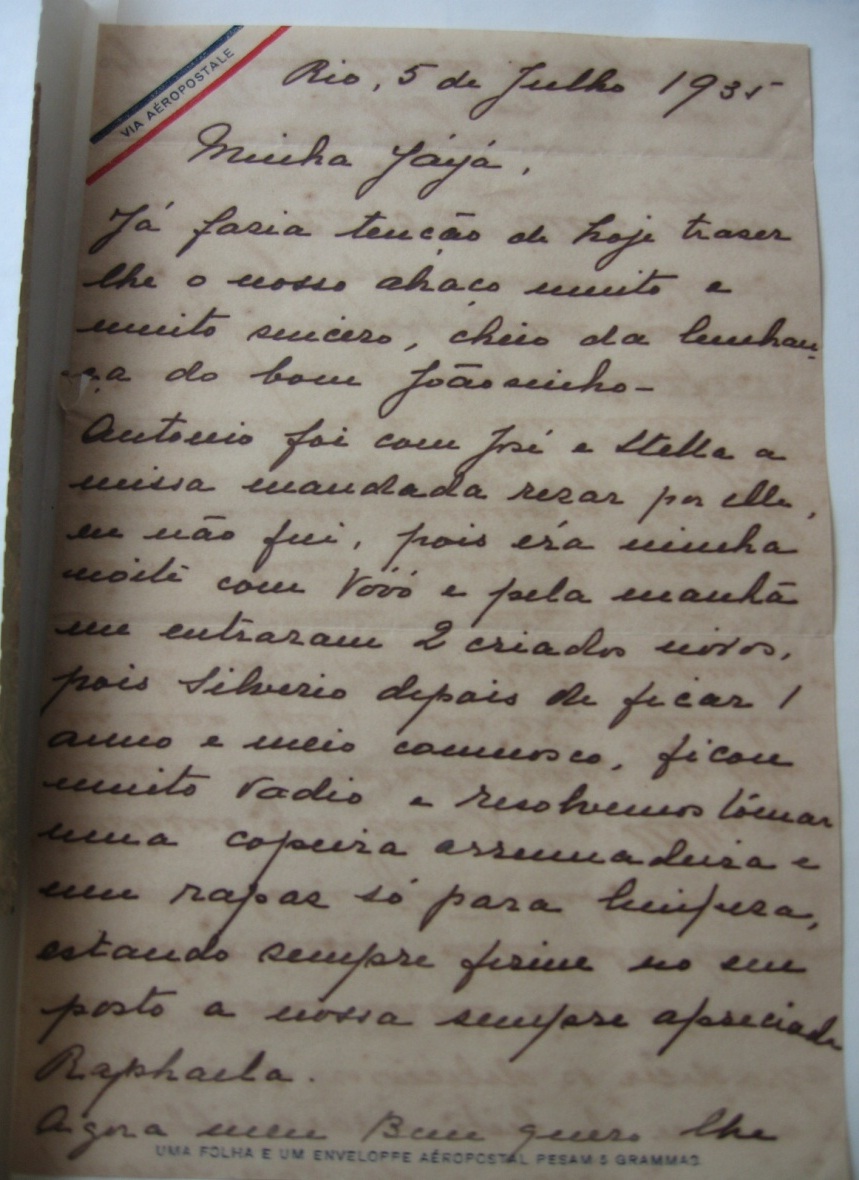 VIA AÉROPOSTALE
Rio, 5 de Julho 1935
Minha Yáyá,
Já fasia tenção de hoje traser
lhe o nosso abraço muito e
muito sincero, cheio da lembran-
ça do bom Joãosinho-
Antonio foi com José e Stella a
missa mandada rezar por elle,
eu não fui, pois éra minha
noite com Vóvó e pela manhã
me entraram 2 criados novos,
pois Silverio depois de ficar 1
anno e meio comnosco, ficou
muito vadio e resolvemos tomar
uma copeira arrumadeira e
um rapaz só para limpeza,
estando sempre firme no seu
posto a nossa sempre apreciada
Raphaela.
Agora meu Bem quero lhe
UMA FOLHA E UM ENVELOPPE AÉROPOSTAL PESAM 5 GRAMMAS